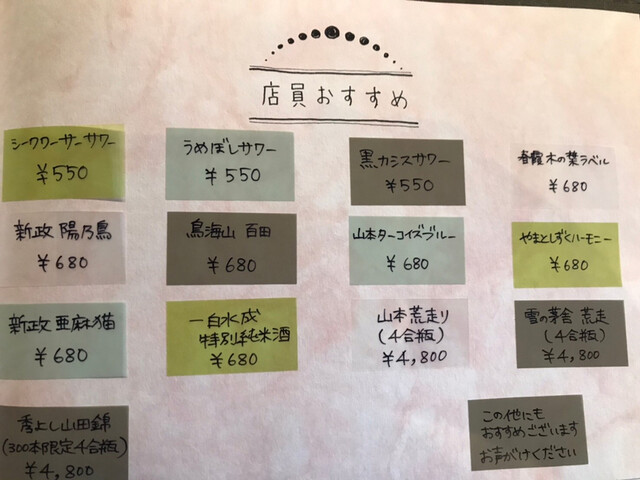 店員おすすめ
シークワーサーサワー
¥550
うめぼしサワー
¥550
黒カシスサワー
¥550
春霞木の葉ラベル
¥680
新政 陽乃鳥
¥680
鳥海山 百田
¥680
山本ターコイズブルー
¥680
やまとしずくハーモニー
¥680
新政 亜麻猫
¥680
一白水成
特別純米酒
¥680
山本荒走り
(4合瓶)
¥4,800
雪の茅舎 荒走
(4合瓶)
¥4,800
秀よし山田錦
(300本限定4合瓶)
¥4,800
この他にも
おすすめございます
お声がけください